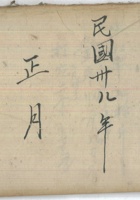 民國卅八年
正月